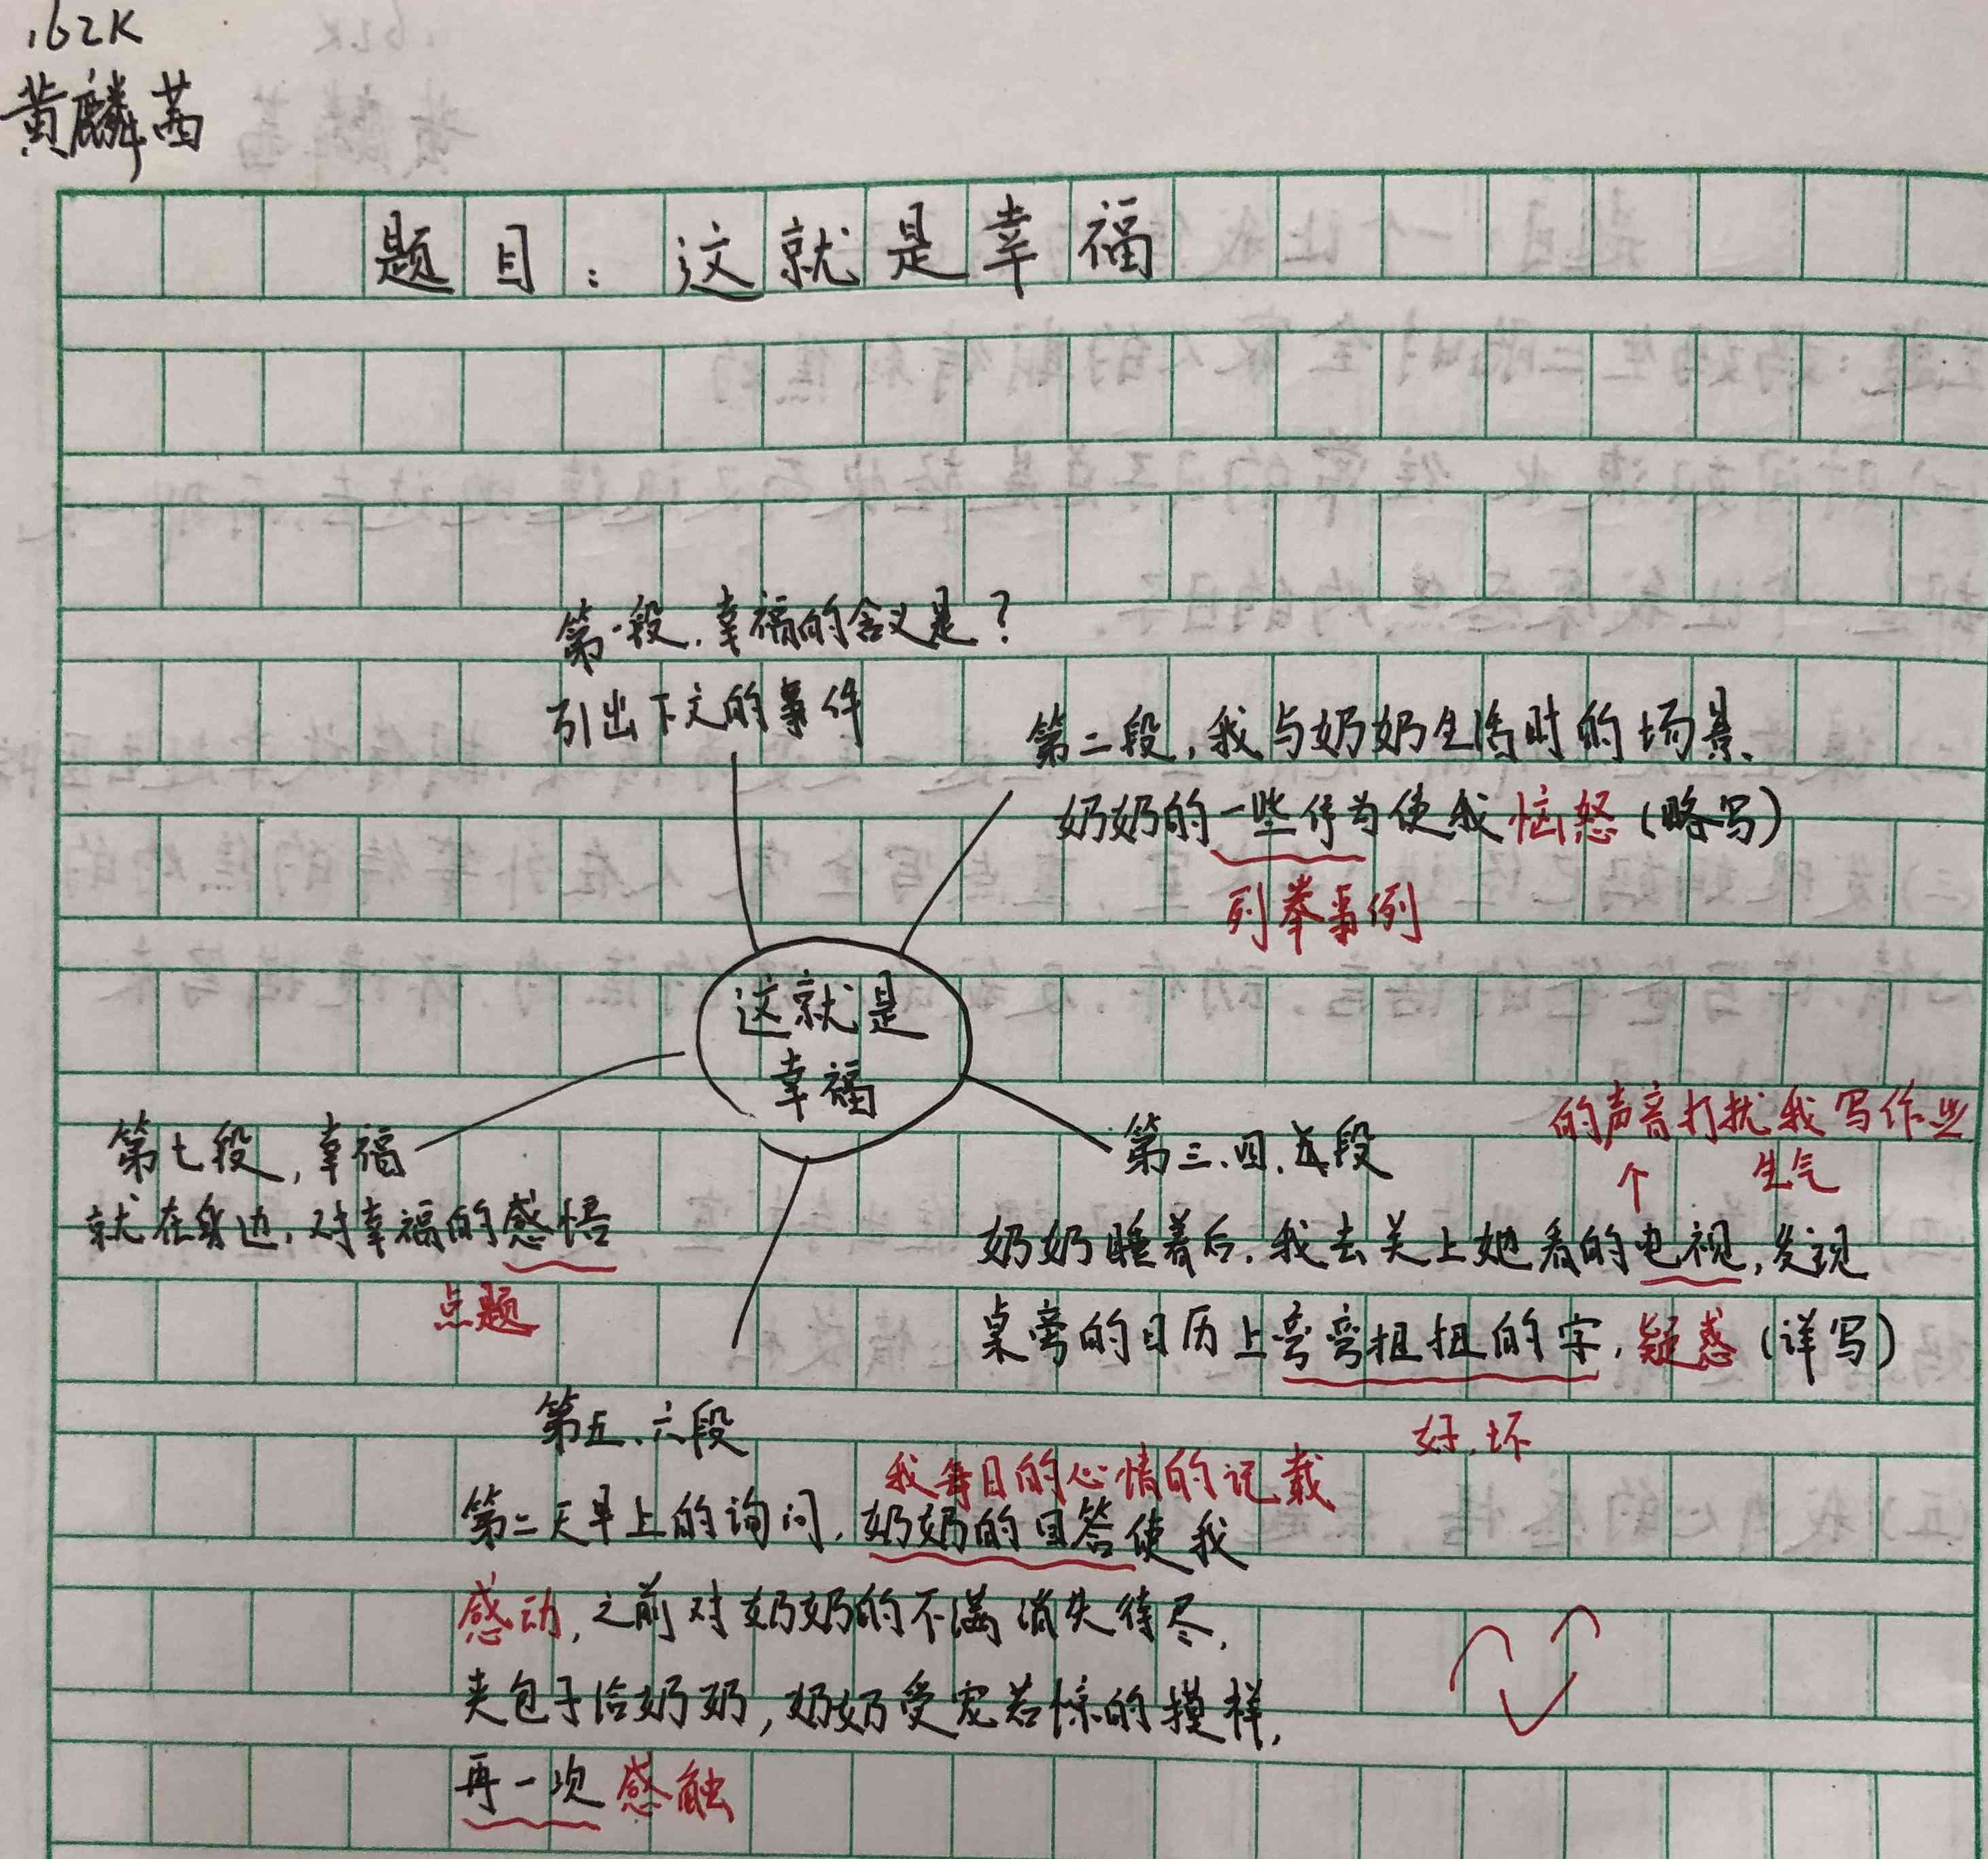 162K
黄麟茜
题目：这就是幸福
第一段，幸福的含义是？
引出下文的事件
第二段，我与奶奶生活时的场景、
奶奶的一些行为使我恼怒（略写）
列举事例
这就是
幸福
第七段，幸福
就在身边，对幸福的感悟
点题
第三、四、五段
的声音打扰我写作业
个 生气
奶奶睡着后，我去关上她看的电视，发现
桌旁的日历上弯弯扭扭的字，疑惑（详写）
好、坏
第五、六段
我每日的心情的记载
第二天早上的询问，奶奶的回答使我
感动，之前对奶奶的不满消失待尽，
夹包子给奶奶，奶奶受宠若惊的摸样，
再一次感触